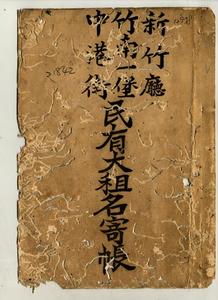 新竹廳
竹南一堡
中港街
民有大租名寄帳